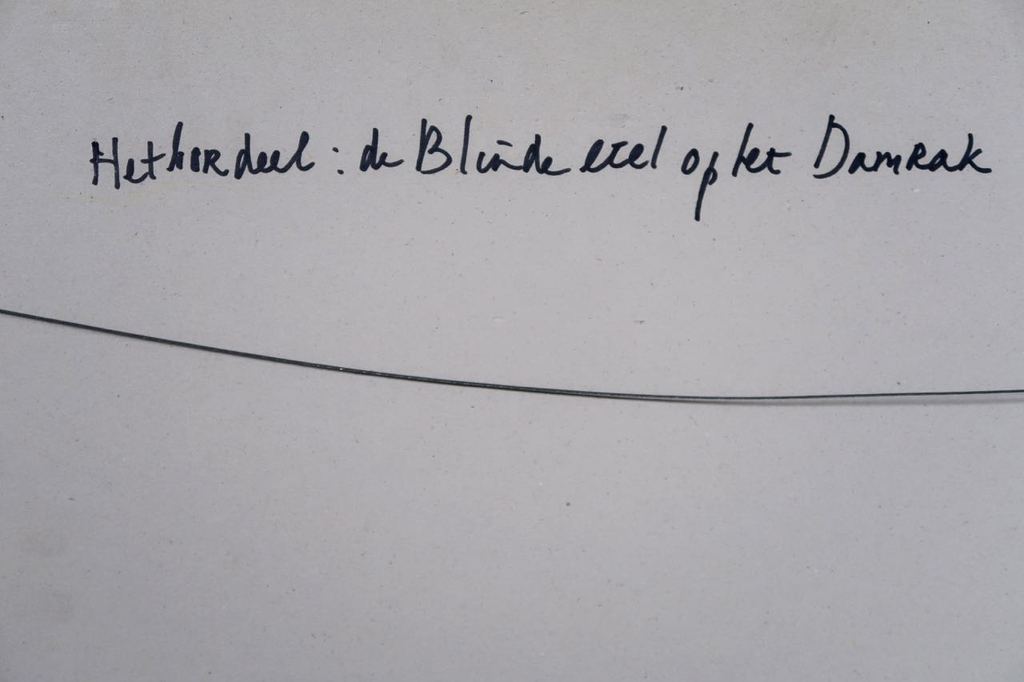 Het bordeel : de Blinde ezel op het Damrak